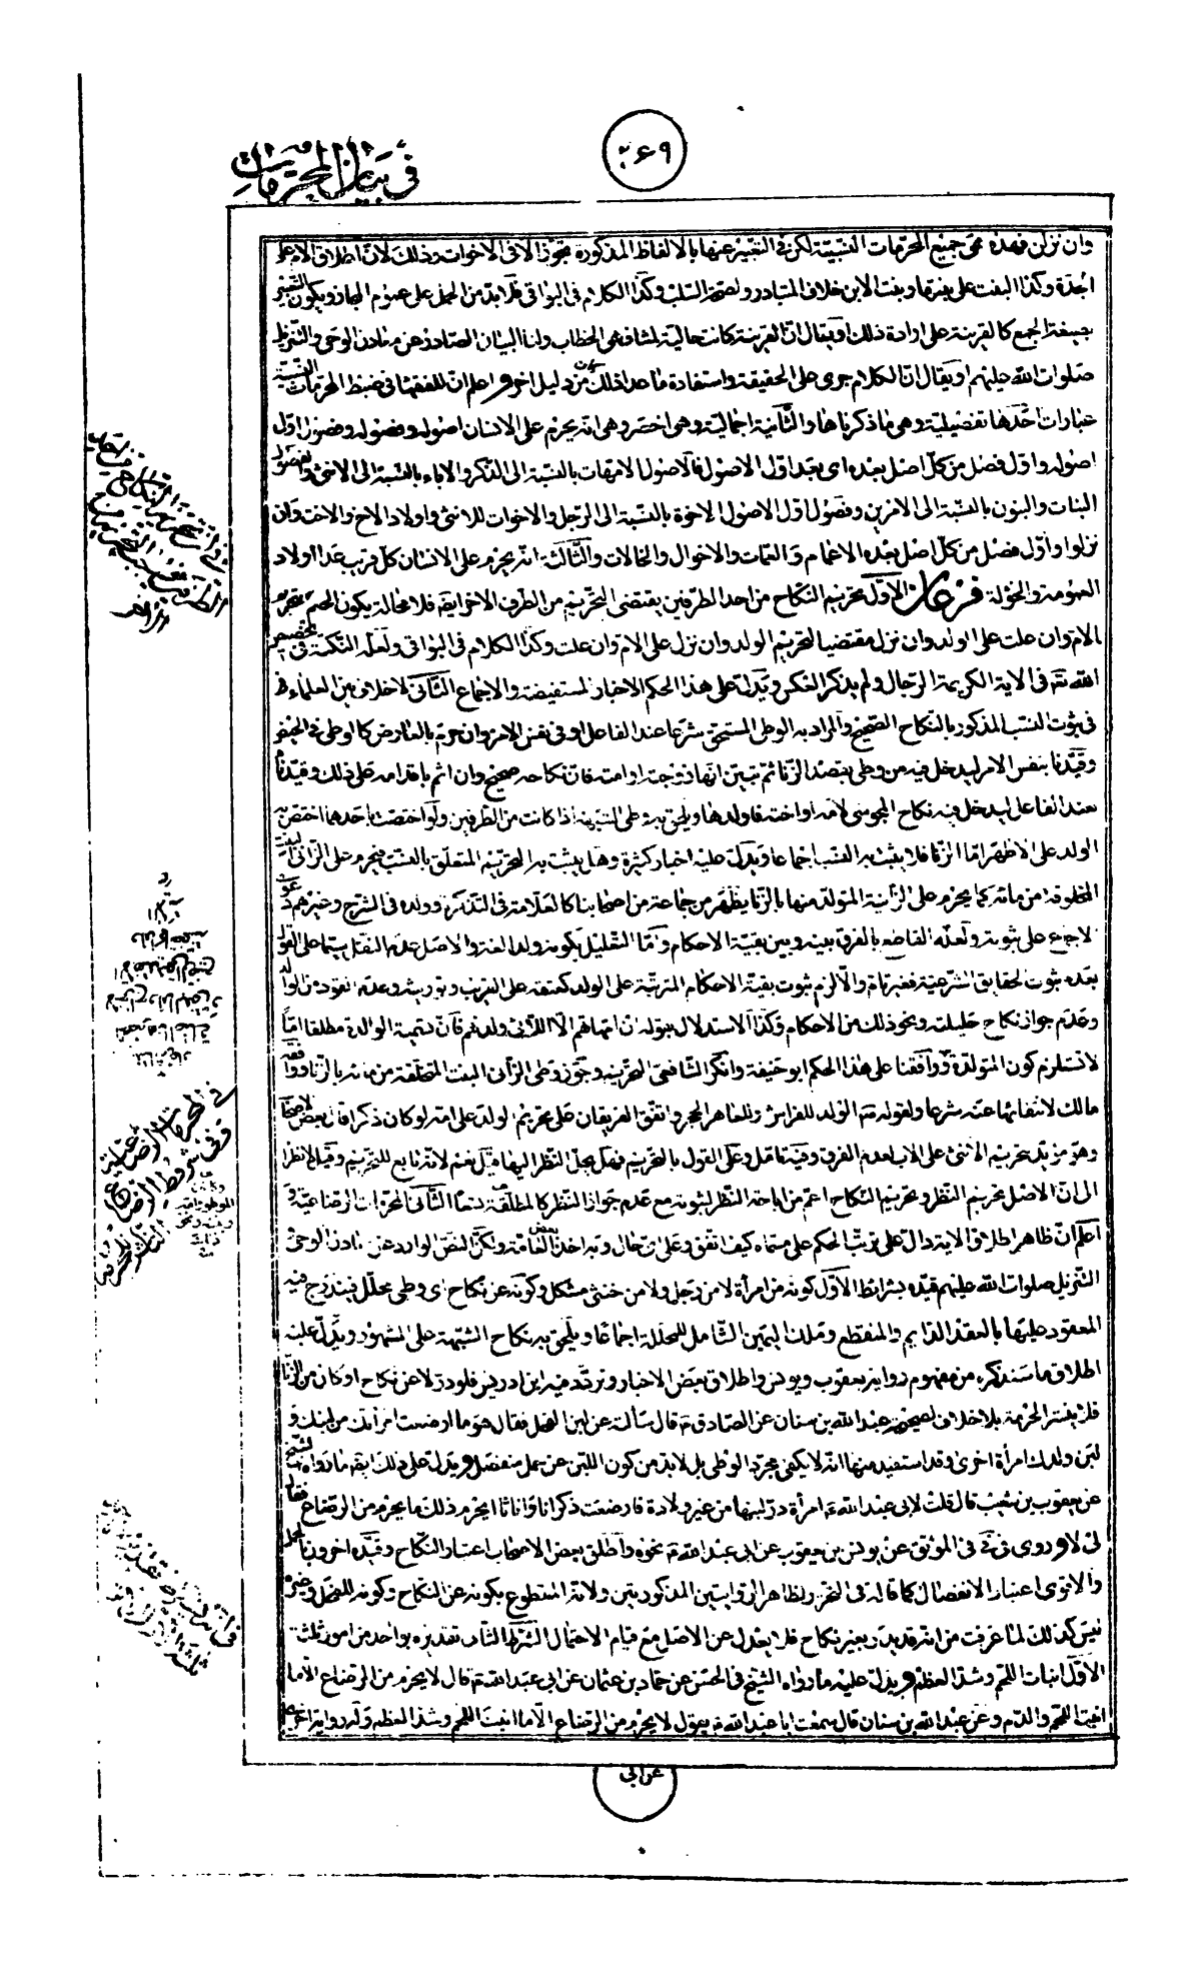 في بيان المحرمات
وان نزلن فهذه هى جميع المحرمات النسبية لكن في التعبير عنها بالالفاظ المذكورة تجوز الا في الاخوات وذلك لان اطلاق الام على
الجدة وكذا البنت على بنتها وبنت الابن خلاف المتبادر ولصحة السلب وكذا الكلام في البواقى فلا بد من الحمل على عموم المجاز ويكون التعبير
بصيغة الجمع كالقرينة على ارادة ذلك او يقال ان القرينة كانت حالية لمشافهى الخطاب ولنا البيان الصادر عن معادن الوحى والتنزيل
صلوات الله عليهم او يقال ان الكلام جرى على الحقيقة واستفادة ما عدا ذلك كان من دليل اخر واعلم ان للفقهاء في ضبط المحرمات النسبية
عبارات احدها تفصيلية وهى ما ذكرناها والثانية اجمالية وهى اخصر وهى انه يحرم على الانسان اصوله وفصوله وفصول اول
اصوله واول فصل من كل اصل بعده اى بعد اول الاصول فالاصول الامهات بالنسبة الى الذكر والاباء بالنسبة الى الانثى والفصول
البنات والبنون بالنسبة الى الامرين وفصول اول الاصول الاخوة بالنسبة الى الرجل والاخوات للانثى واولاد الاخ والاخت وان
نزلوا واول فصل من كل اصل بعده الاعمام والعمات والاخوال والخالات والثالثة انه يحرم على الانسان كل قريب عدا اولاد
العمومة والخؤلة فرعان الاول تحريم النكاح من احد الطرفين يقتضى التحريم من الطرف الاخر ايضا فلا محالة يكون الحكم بتحريم
الام وان علت على الولد وان نزل مقتضيا لتحريم الولد وان نزل على الام وان علت وكذا الكلام في البواقى ولعله النكتة في تخصيص
الله تعالى في الاية الكريمة الرجال ولم يذكر العكس ويدل على هذا الحكم الاخبار المستفيضة والاجماع الثانى لا خلاف بين العلماء
في ثبوت النسب المذكور بالنكاح الصحيح والمراد به الوطى المستحق شرعا عند الفاعل او في نفس الامر وان حرم بالعارض كالوطى في الحيض
وقيدنا بنفس الامر ليدخل فيه من وطى بقصد الزنا ثم تبين انها زوجته او امته فان نكاحه صحيح وان اثم باقدامه على ذلك وقيدنا
بعند الفاعل ليدخل فيه نكاح المجوسى لامه او اخته فاولدها ويلحق به وطى الشبهة اذا كانت من الطرفين ولو اختصت باحدهما اختص به
الولد على الاظهر اما الزنا فلا يثبت به النسب اجماعا ويدل عليه اخبار كثيرة وهل يثبت به التحريم المتعلق بالنسب فيحرم على الزانى البنت
المخلوقة من مائه كما يحرم على الزانية المتولد منها بالزنا يظهر من جماعة من اصحابنا كالعلامة في التذكرة وولده في الشرح وغيرهم دعوى
الاجماع على ثبوته ولعله القاضى بالفرق بينه وبين بقية الاحكام واما التعليل بكونه ولدا لغة والاصل عدم النقل سيما على القول
بعدم ثبوت الحقايق الشرعية فغير تام والا لزم ثبوت بقية الاحكام المترتبة على الولد كعتقه على القريب وتوريثه وعدم القود من الوالد
وعدم جواز نكاح حليلته ونحو ذلك من الاحكام وكذا الاستدلال بقوله ان امهاتهم الا اللائى ولدنهم فان تسمية الوالدة مطلقا اما
لا تستلزم كون المتولدة ووافقنا على هذا الحكم ابو حنيفة وانكر الشافعى التحريم وجوز وطى الزانى البنت المتخلقة من مائه بالزنا ووافقه
مالك لانتفائها عنه شرعا ولقوله الولد للفراش وللعاهر الحجر واتفق الفريقان على تحريم الولد على امه لو كان ذكرا قال بعض الاصحاب
وهو مؤيد بتحريم الانثى على الاب لعدم الفرق وفيه تامل وعلى القول بالتحريم فهل يحل النظر اليها قيل نعم لانه تابع للتحريم وقيل لا نظرا
الى ان الاصل تحريم النظر وتحريم النكاح اعم من اباحة النظر لثبوته مع عدم جواز النظر كالمطلقة تسعا الثانى المحرمات الرضاعية و
اعلم ان ظاهر اطلاق الاية دال على ترتب الحكم على مسماه كيف اتفق وعلى اى حال وبه اخذ بعض العامة ولكن النص الوارد عن معادن الوحى و
التنزيل صلوات الله عليهم قيده بشرائط الاول كونه من امرأة لا من رجل ولا من خنثى مشكل وكونه عن نكاح اى وطى محلل فيندرج فيه
المعقود عليها بالعقد الدايم والمنقطع وملك اليمين الشامل للمحللة اجماعا ويلحق به نكاح الشبهة على المشهور ويدل عليه
اطلاق ما سنذكره من مفهوم رواية يعقوب ويونس واطلاق بعض الاخبار وتردد فيه ابن ادريس فلو در لا عن نكاح او كان من الزنا
فلا ينشر الحرمة بلا خلاف لصحيح عبد الله بن سنان عن الصادق ع قال سألته عن لبن الفحل فقال هو ما ارضعت امرأتك من لبنك و
لبن ولدك امرأة اخرى وقد استفيد منها انه لا يكفى مجرد الوطى بل لا بد من كون اللبن عن حمل منفصل ويدل على ذلك ايضا ما رواه الشيخ
عن يعقوب بن شعيب قال قلت لابى عبد الله ع امرأة در لبنها من غير ولادة فارضعت ذكرانا واناثا ايحرم ذلك ما يحرم من الرضاع فقال
لى لا وروى في في الموثق عن يونس بن يعقوب عن ابى عبد الله ع نحوه واطلق بعض الاصحاب اعتبار النكاح وقيده اخرون بالحمل
والاقوى اعتبار الانفصال كما قاله في التحرير لظاهر الروايتين المذكورتين ولانه المقطوع بكونه عن النكاح وكونه للفحل وغيره
ليس كذلك لما عرفت من انه قد يدر بغير نكاح فلا يعدل عن الاصل مع قيام الاحتمال الشرط الثانى تقديره بواحد من امور ثلثة
الاول انبات اللحم وشد العظم ويدل عليه ما رواه الشيخ في الحسن عن حماد بن عثمان عن ابى عبد الله ع قال لا يحرم من الرضاع الا ما
انبت اللحم والدم وعن عبد الله بن سنان قال سمعت ابا عبد الله ع يقول لا يحرم من الرضاع الا ما انبت اللحم وشد العظم وله رواية اخرى
عن ابى
في المحرمات الرضاعية
وفى شروط الرضاع